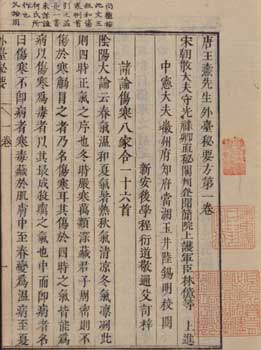 唐王燾先生外臺秘要方第一卷
宋朝散大夫守光祿卿直秘閣判登聞簡院上護軍臣林億等 上進
中憲大夫徽州府知府當湖玉井陸錫明校閱
新安後學程衍道敬通父訂梓
諸論傷寒八家合一十六首
陰陽大論云春氣溫和夏氣暑熱秋氣清凉冬氣凛冽此
則四時正氣之序也冬時嚴寒萬類深藏君子周密則不
傷於寒觸冒之者乃名傷寒耳其傷於四時之氣皆能為
病以傷寒為毒者以其最成殺癘之氣也中而即病者名
曰傷寒不即病者寒毒藏於肌膚中至春變為溫病至夏
外臺秘要 卷一